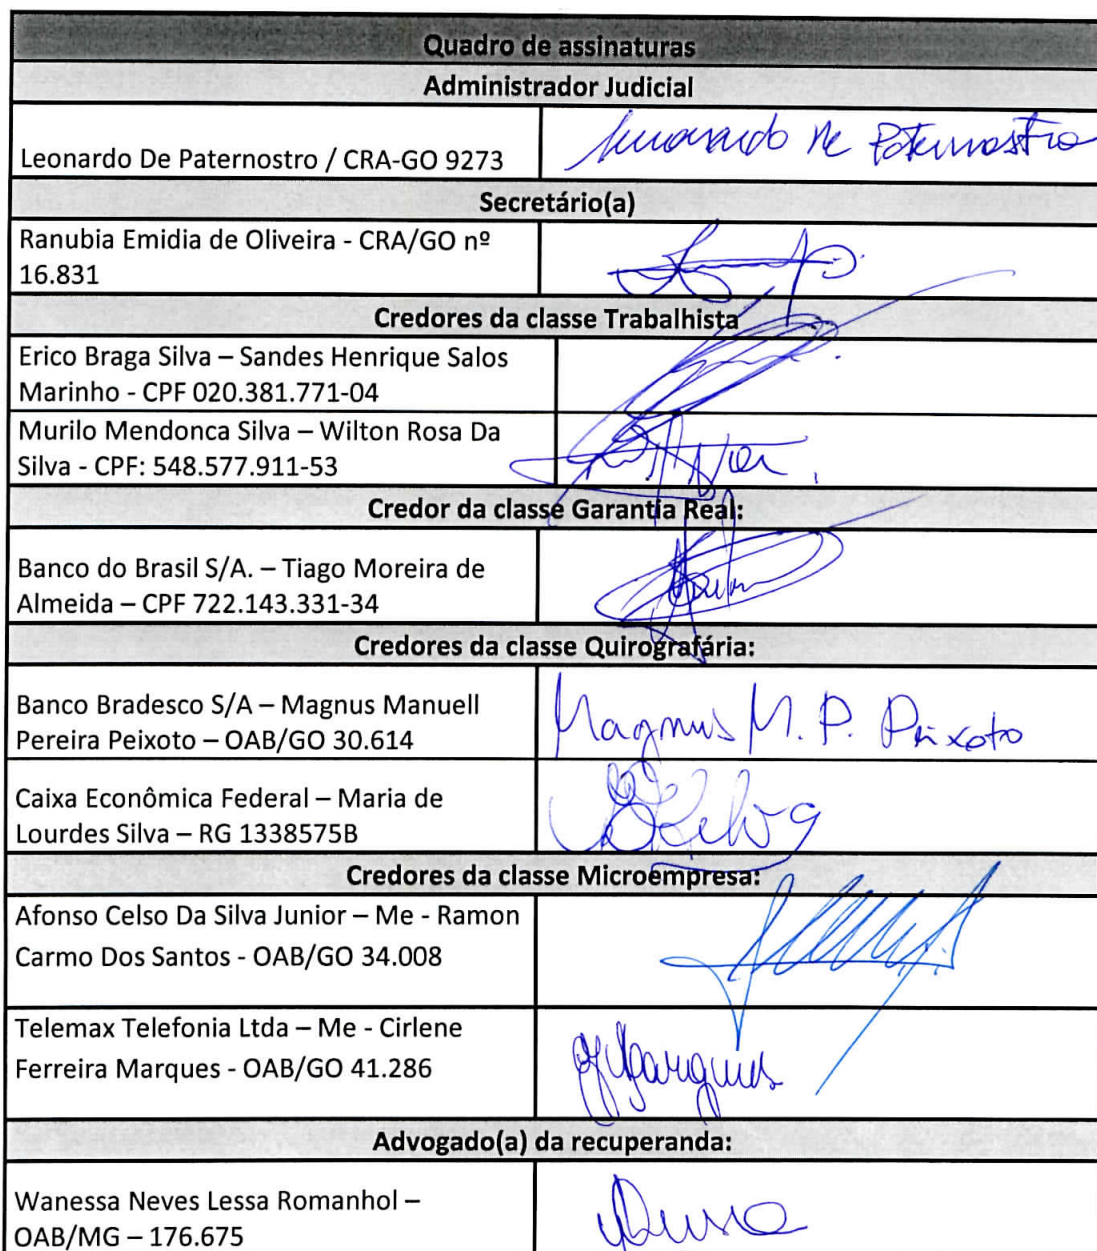 Quadro de assinaturas
Administrador Judicial
Leonardo De Paternostro / CRA-GO 9273
Leonardo De Paternostro
Secretário(a)
Ranubia Emidia de Oliveira - CRA/GO nº
16.831
Credores da classe Trabalhista
Erico Braga Silva – Sandes Henrique Salos
Marinho - CPF 020.381.771-04
Murilo Mendonca Silva – Wilton Rosa Da
Silva - CPF: 548.577.911-53
Credor da classe Garantia Real:
Banco do Brasil S/A. – Tiago Moreira de
Almeida – CPF 722.143.331-34
Credores da classe Quirografária:
Banco Bradesco S/A – Magnus Manuell
Pereira Peixoto – OAB/GO 30.614
Magnus M. P. Peixoto
Caixa Econômica Federal – Maria de
Lourdes Silva – RG 1338575B
Credores da classe Microempresa:
Afonso Celso Da Silva Junior – Me - Ramon
Carmo Dos Santos - OAB/GO 34.008
Telemax Telefonia Ltda – Me - Cirlene
Ferreira Marques - OAB/GO 41.286
Advogado(a) da recuperanda:
Wanessa Neves Lessa Romanhol –
OAB/MG – 176.675